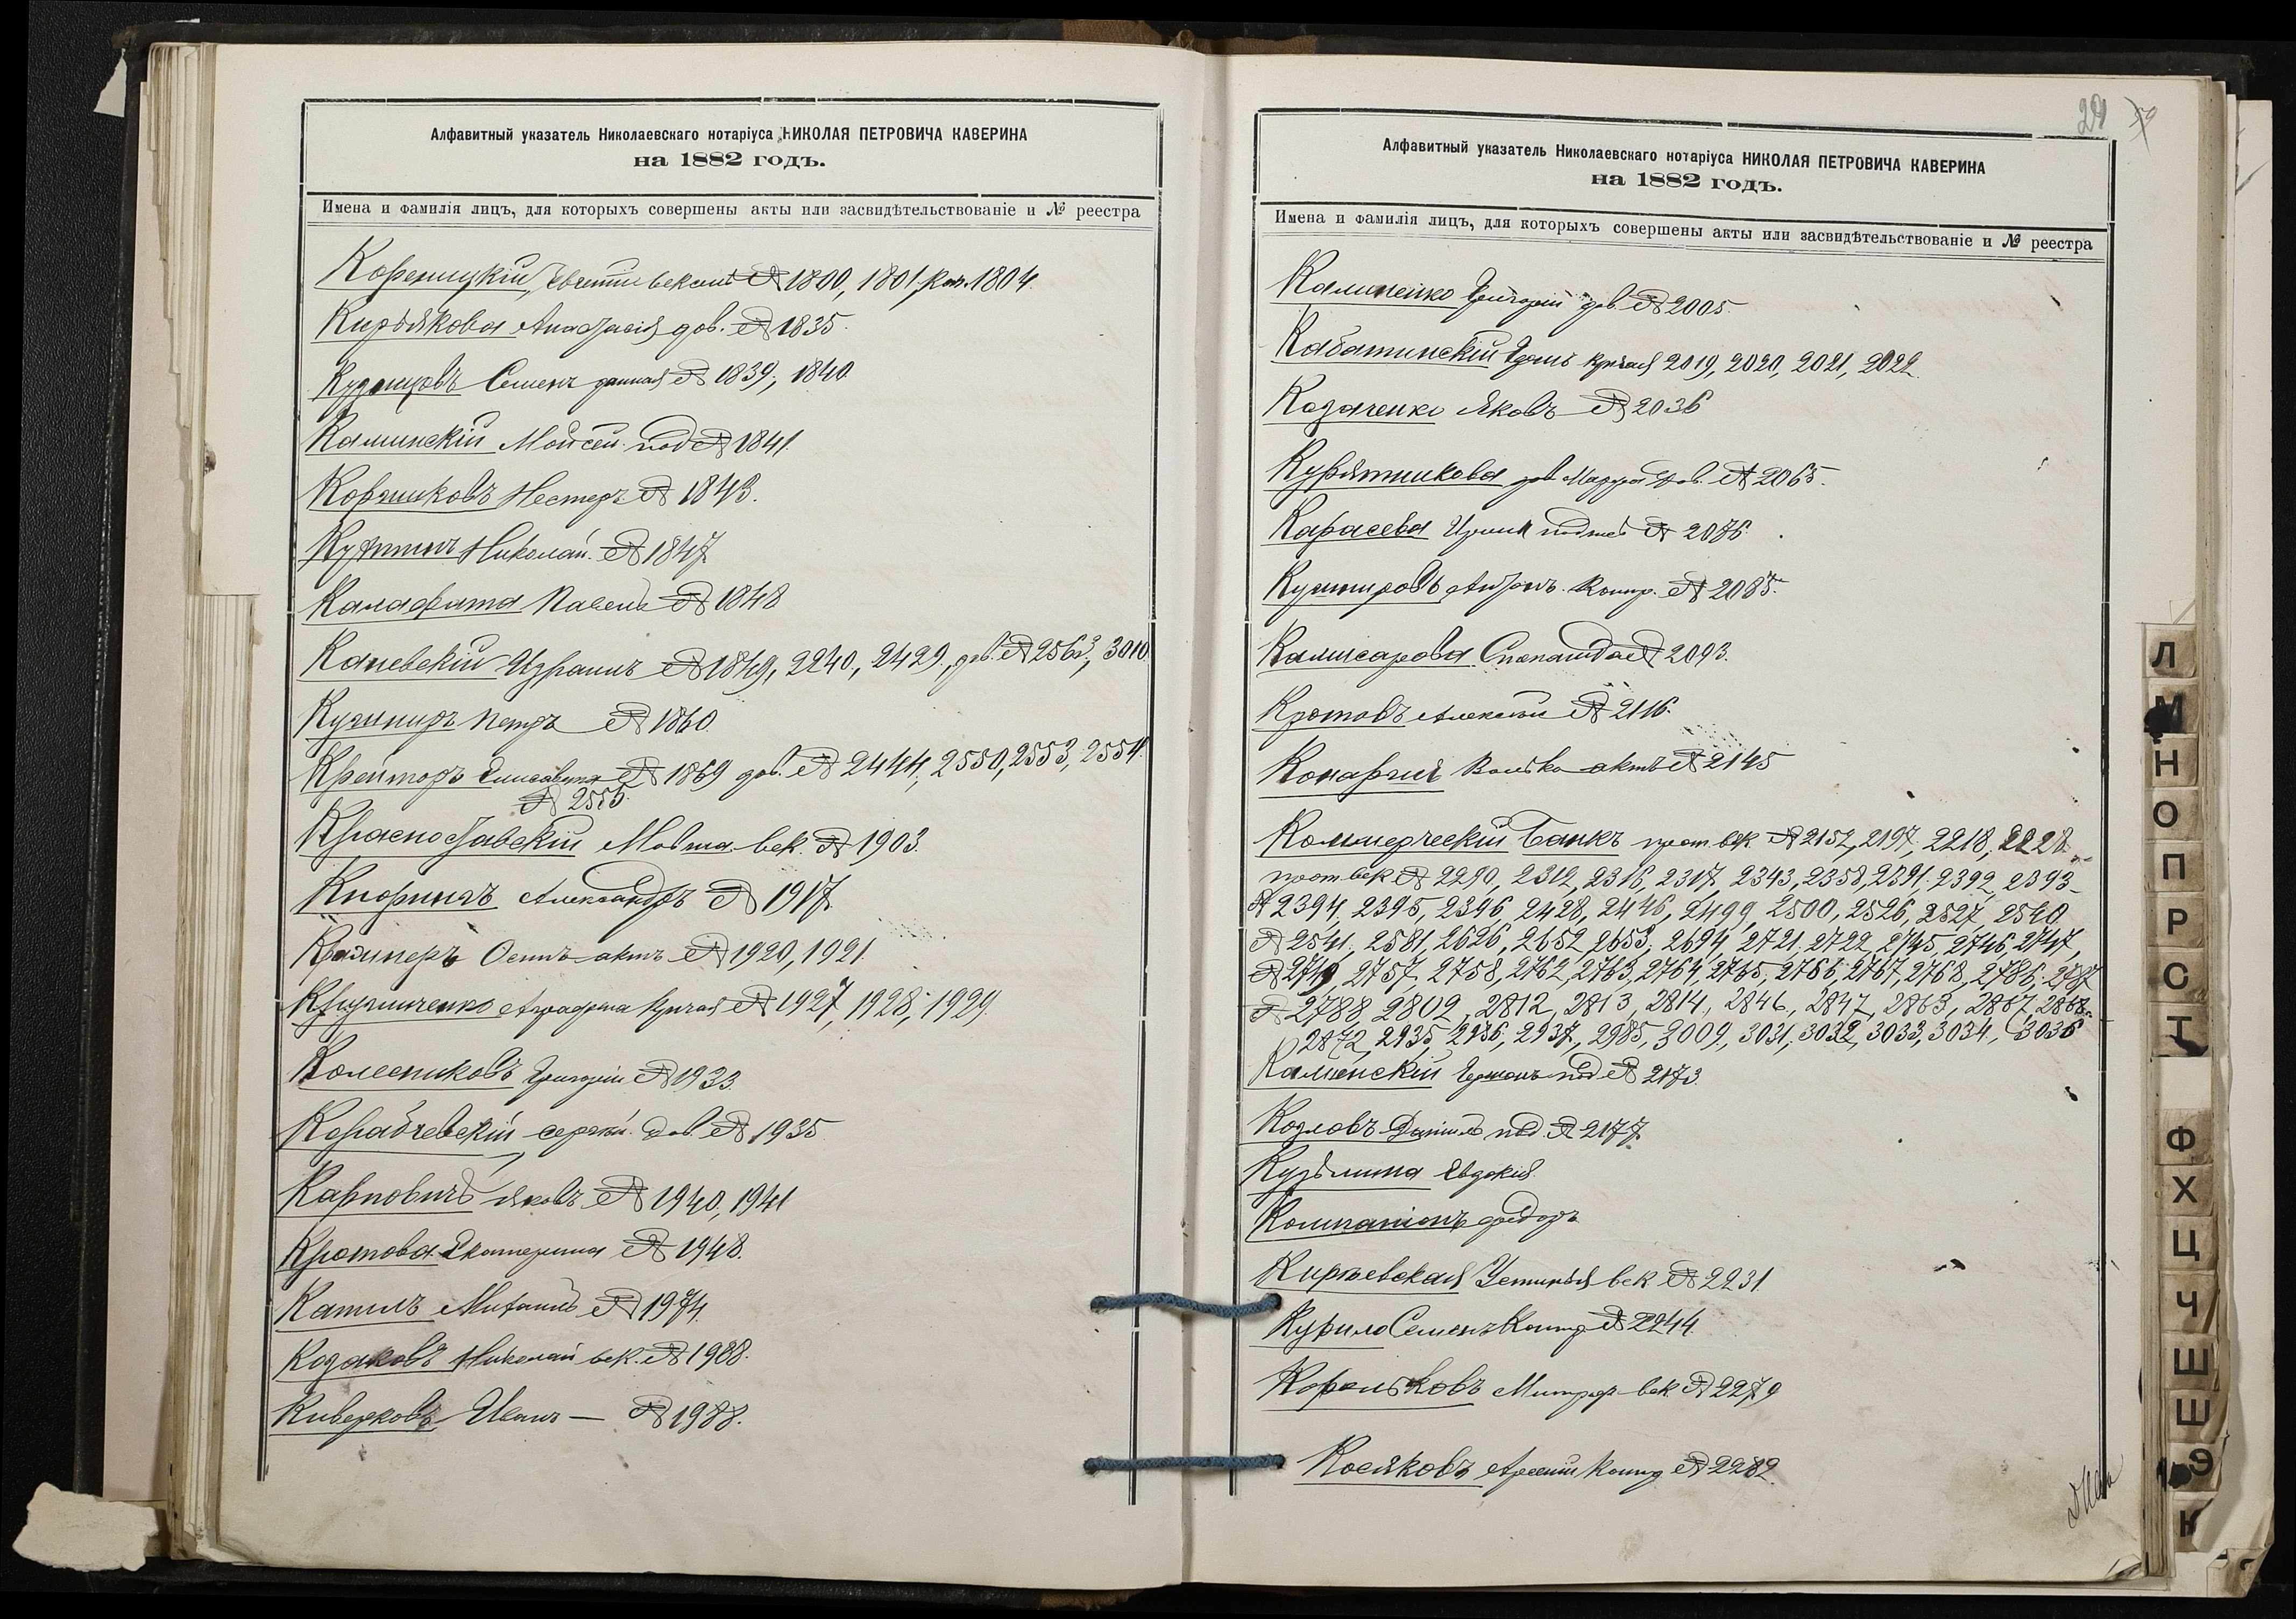 Алфавитный указатель Николаевскаго нотаріуса НИКОЛАЯ ПЕТРОВИЧА КАВЕРИНА
на 1882 годъ.
Имена и фамилія лицъ, для которыхъ совершены акты или засвидѣтельствованіе и № реестра
№ 1800, 1801, 1804
Кирьякова Анастасія дов. № 1835.
Кузнецовъ Семенъ данная № 1839, 1840
Каминскій Мойсей под № 1841.
Коршиковъ Нестеръ № 1843.
Николай. № 1847
Калафата Павелъ № 1848
Каневскій Израиль № 1849, 2240, 2429, дов. № 2563, 3010
Кушниръ Петръ № 1860.
Крейторъ Елисавета № 1869 дов. № 2444, 2550, 2553, 2554
№ 2555.
Красноставскій Мовша век. № 1903.
Кнорингъ Александръ № 1917.
Осипъ актъ № 1920, 1921.
Аграфена купчая № 1927, 1928, 1929.
Колесниковъ Григорій № 1933.
Корабчевскій Сергѣй. Дов. № 1935
Карповичъ Яковъ № 1940, 1941
Кротова Екатерина № 1948.
Михаилъ № 1974.
Козаковъ Николай век. № 1988.
Иванъ — № 1988.
29
Алфавитный указатель Николаевскаго нотаріуса НИКОЛАЯ ПЕТРОВИЧА КАВЕРИНА
на 1882 годъ.
Имена и фамилія лицъ, для которыхъ совершены акты или засвидѣтельствованіе и № реестра
Калиненко Григорій дов. № 2005.
Кабатинскій купчая 2019, 2020, 2021, 2022.
Козаченко Яковъ № 2036
Курятникова Марфа дов. № 2065.
Карасева № 2076.
Кушнировъ Антонъ. Контр. № 2085.
Комисарова № 2093.
Кротовъ Алексѣй № 2116.
актъ № 2145
Коммерческій Банкъ прот. век № 2152, 2197, 2218, 2228
прот век № 2290, 2312, 2316, 2317, 2343, 2358, 2391, 2392, 2393
№ 2394, 2395, 2396, 2428, 2446, 2499, 2500, 2526, 2527, 2540
№ 2541, 2581, 2626, 2652, 2653, 2694, 2721, 2722, 2745, 2746, 2747,
2757, 2758, 2762, 2763, 2764, 2765, 2766, 2767, 2768, 2786, 2787
№ 2788, 2809, 2812, 2813, 2814, 2846, 2847, 2863, 2867, 2868
2872, 2935, 2936, 2937, 2985, 3009, 3031, 3032, 3033, 3034, 3036
Каминскій под № 2173
Козловъ Даніилъ под. № 2177.
Кузьмина Евдокія.
Компаніонъ Федоръ
Киріевская Устинья век № 2231.
Курило Семенъ Контр № 2244.
Корольковъ Митроф. век № 2279
Косяковъ Арсеній Контр № 2282
Л
М
Н
О
П
Р
С
Т
Ф
Х
Ц
Ч
Ш
Щ
Э